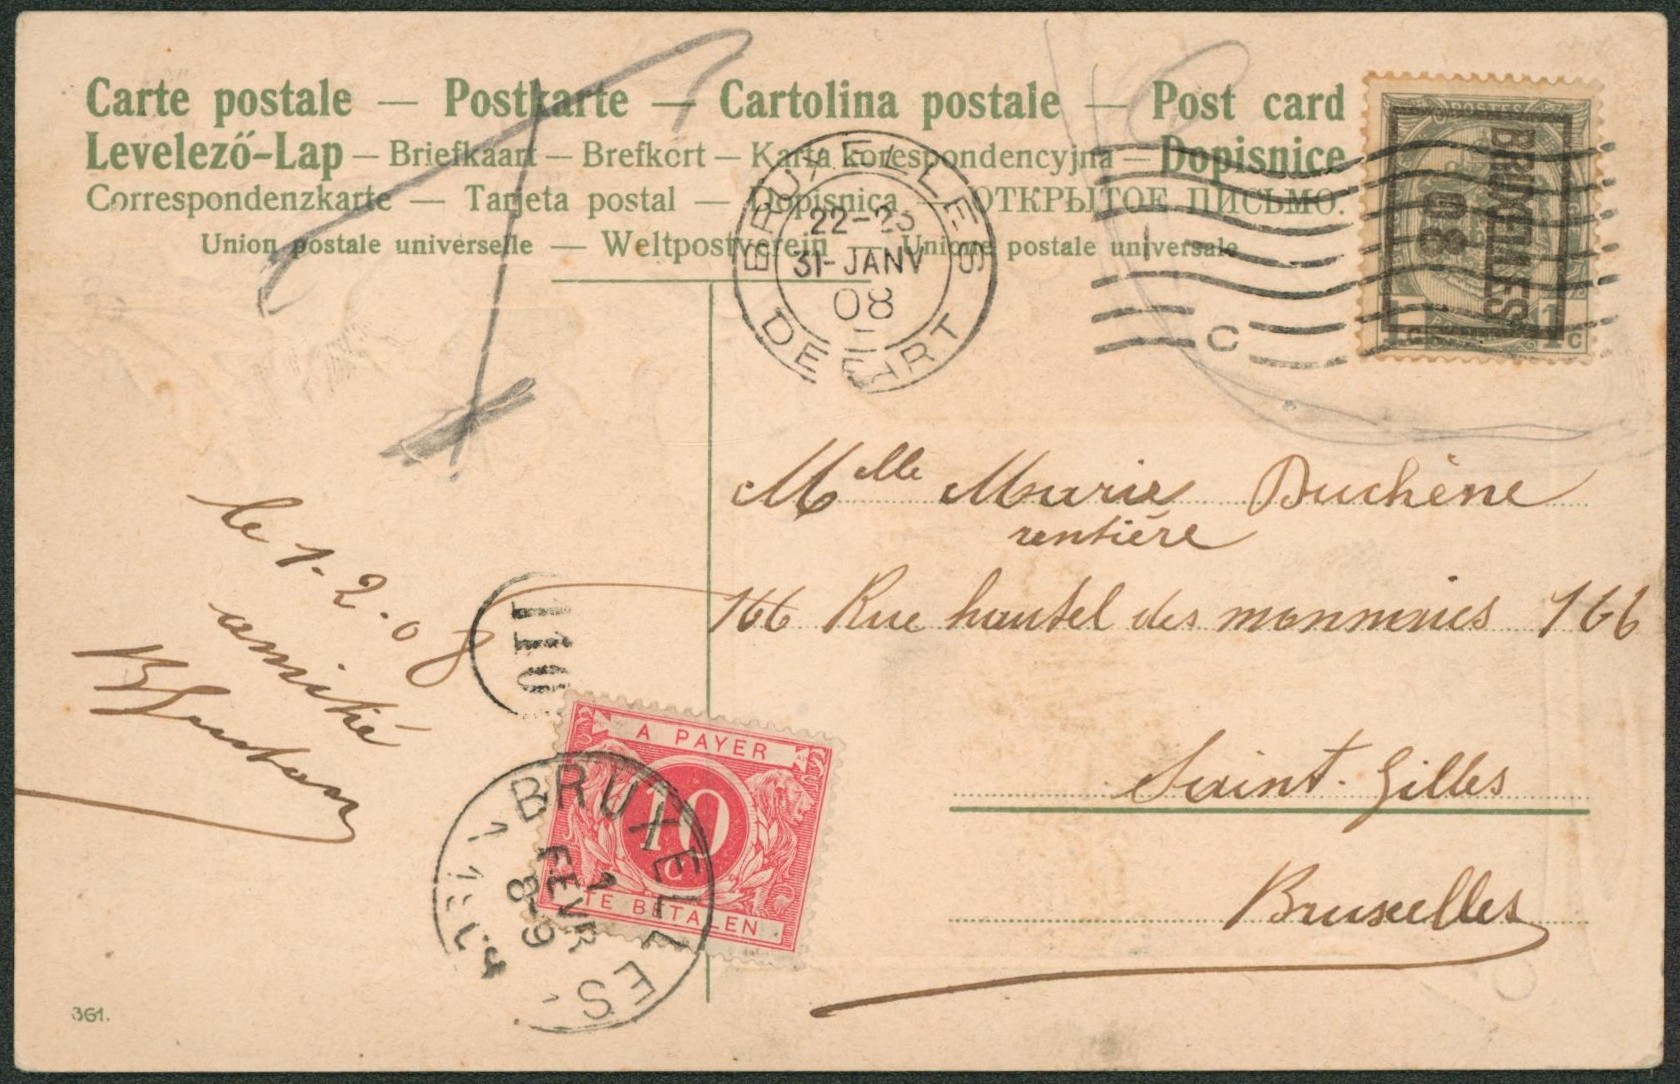 Carte postale — Postkarte — Cartolina postale — Post card
Levelező-Lap — Briefkaart — Brefkort — Karta korespondencyjna — Dopisnice
Correspondenzkarte — Tarjeta postal — Dopisnica — ОТКРЫТОЕ ПИСЬМО.
Union postale universelle — Weltpostverein — Unione postale universale
BRUXELLES
22-23
31-JANV
08
DEPART
C
POSTES
BRUXELLES
08
1c 1c
Mlle Marie Duchêne
rentière
166 Rue hautel des monnaies 166
Saint-Gilles
Bruxelles
le 1-2-08
amitié
110
A PAYER
10
TE BETALEN
BRUXELLES
1
FEVR
8-9
361.